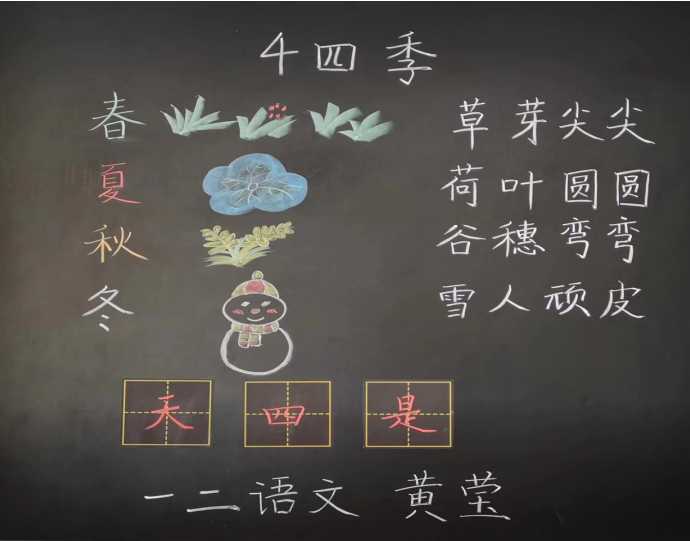 4 四季
春 草芽尖尖
夏 荷叶圆圆
秋 谷穗弯弯
冬 雪人顽皮
天 四 是
一二语文 黄莹